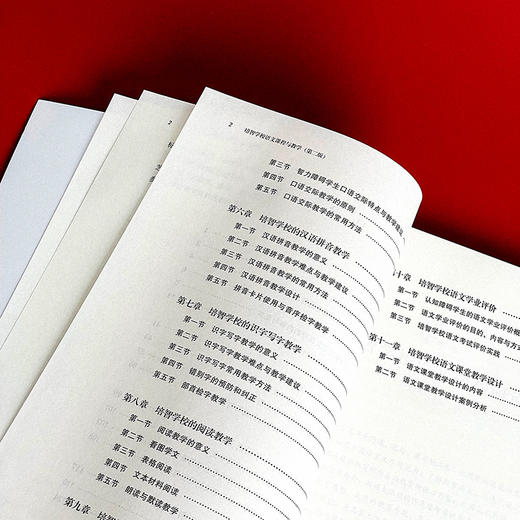 2 培智学校语文课程与教学（第二版）
第三节 智力障碍学生口语交际特点与教学建议
第四节 口语交际教学的原则
第五节 口语交际教学的常用方法
第六章 培智学校的汉语拼音教学
第一节 汉语拼音教学的意义
第二节 汉语拼音教学难点与教学建议
第三节 汉语拼音教学的常用方法
第四节 汉语拼音教学设计
第五节 拼音卡片使用与音序检字教学
第七章 培智学校的识字写字教学
第一节 识字写字教学的意义
第二节 识字写字教学难点与教学建议
第三节 识字写字常用教学方法
第四节 错别字的预防和纠正
第五节 部首检字教学
第八章 培智学校的阅读教学
第一节 阅读教学的意义
第二节 看图学文
第三节 表格阅读
第四节 文本材料阅读
第五节 朗读与默读教学
第九章 培智学校
十章 培智学校语文学业评价
第一节 认知障碍学生的语文学业评价
第二节 语文学业评价的目的、内容与方式
第三节 培智学校语文考试评价实践
第十一章 培智学校语文课堂教学设计
第一节 语文课堂教学设计的内容
第二节 语文课堂教学设计案例分析
2